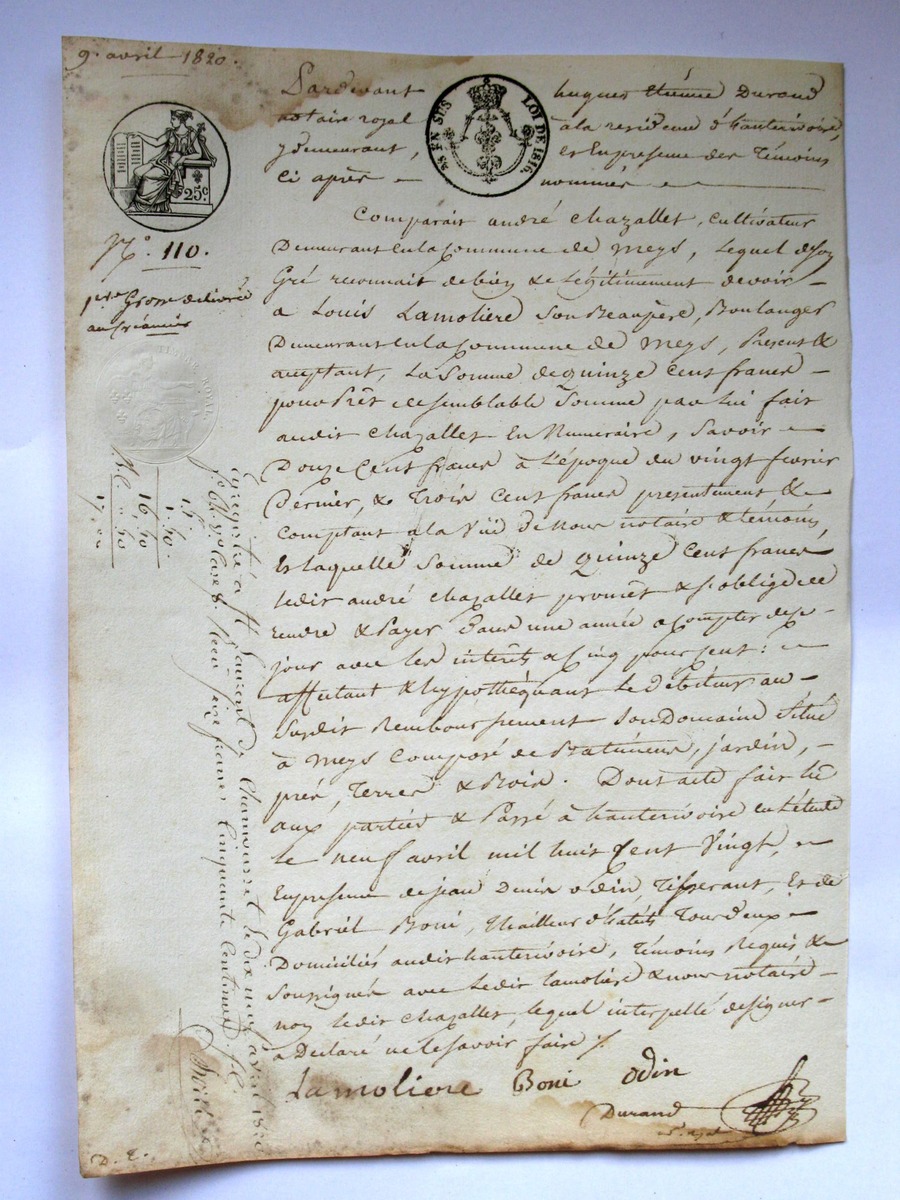 9. avril 1820.
Pardevant hugues Etienne Durand
notaire royal à la residence d'hauterivoire,
y demeurant, et En presence des Témoins
Ci après nommés
EN SUS LOI DE 1816.
25c
Comparait andré Chazallet, cultivateur
N.° 110.
Demeurant en la Commune de Meys, Lequel de son
Gré reconnait de bien & Légitimement devoir
1ère Grosse délivrée
au créancier
a Louis Lamoliere Son Beaupère, Boulanger
Demeurant en la Commune de Meys, Present &
acceptant, La Somme de quinze Cent francs
pour Prêt de semblable Somme par lui fait
audit Chazallet En Numeraire, Savoir
Douze Cent francs à L'époque du vingt fevrier
Dernier, & Trois Cent francs presentement &
Comptant a la Vüe de Nous notaire & témoins,
Et laquelle Somme de Quinze Cent francs
ledit andré Chazallet promet & s'oblige de
rendre & Payer Dans une année a compter de ce
jour avec les interêts a Cinq pour Cent :
affectant & hypothéquant le Débiteur au
Susdit Remboursement Son Domaine Situé
à Meys Composé de Batiments, jardin,
prés, Terres & Bois. Dont acte fait lu
aux parties & Passé à hauterivoire en L'étude
le neuf avril mil huit Cent Vingt,
En presence de jean Denis odin, Tisserant, Et de
Gabriel Boni, Thailleur d'habits Tous deux
Domiciliés audit hauterivoire, Témoins Requis &
Soussignés avec ledit lamoliere & nous notaire
non ledit Chazallet, lequel interpellé de signer
a Déclaré ne le savoir faire
Lamoliere Boni Odin
Durand
15"
1.50.
16,50
50
17,00
Enregistré à St Laurent de Chamousset le dix neuf avril 1820
reçu seize francs Cinquante Centimes
D. E.